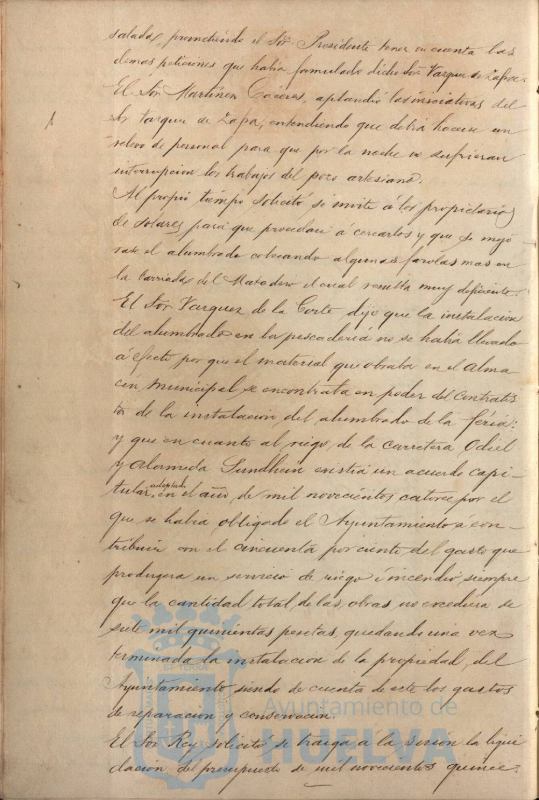 saladas, prometiendo el Sor. Presidente tener en cuenta las
demas peticiones que habia formulado dicho Sor Vazquez de Zafra.
El Sor Martinez Cáceres, aplaudió las iniciativas del
Sr Vazquez de Zafra, entendiendo que debia hacerse un
relevo de personal para que por la noche no sufrieran
interrupcion los trabajos del pozo artesiano.
Al propio tiempo, solicitó, se invite á los propietarios
de solares, para que procedan á cercarlos y que se mejo
rase el alumbrado colocando algunas farolas mas en
la barriada del Matadero el cual resulta muy deficiente.
El Sor Vazquez de la Corte, dijo que la instalacion
del alumbrado en la pescadería no se habia llevado
á efecto por que el material que obraba en el Alma
cen Municipal se encontraba en poder del Contratis
ta de la instalación del alumbrado de la féria:
y que en cuanto al riego, de la carretera Odiel
y Alameda Sundhein existia un acuerdo capi-
tular, adoptado en el año, de mil novecientos catorce por el
que se habia obligado el Ayuntamiento a con-
tribuir con el cincuenta por ciento del gasto que
produgera un servicio de riego é incendio, siempre
que la cantidad total, de las, obras no excediera de
siete mil quinientas pesetas, quedando una vez
terminada la instalacion de la propiedad, del
Ayuntamiento, siendo de cuenta de este los gastos
de reparacion y conservación.
El Sor Rey, solicitó se traiga a la sesión la liqui
dación del presupuesto de mil novecientos quince
Ayuntamiento de
HUELVA